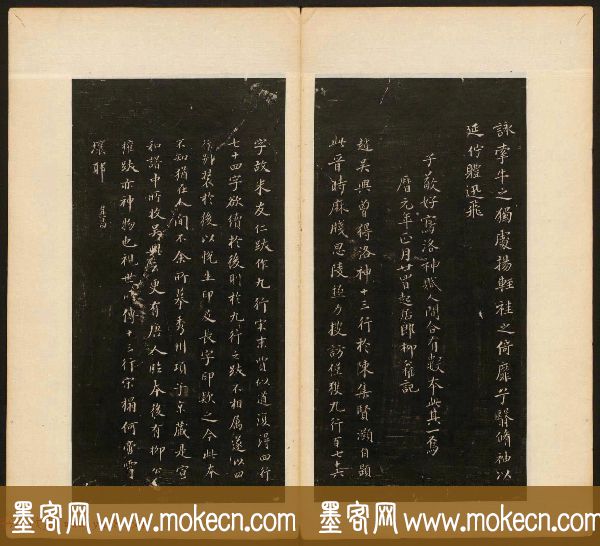 詠牽牛之獨處揚輕袿之倚靡兮翳脩袖以
延佇體迅飛
子敬好寫洛神賦人間合有數本此其一焉
曆元年正月廿四日起居郎柳權記
趙吳興曾得洛神十三行於陳集賢灝自題
此晉時麻牋思陵極力搜訪僅獲九行百七十六
字故米友仁跋作九行宋末賈似道復得四行
七十四字欲續於後則於九行之跋不相属遂以四
行別裝於後以悅生印及長字印款之今此本
不知猶在人間不余所摹秀州項子京藏是宣
和譜中所收吳興云更有唐人臨本後有柳公
權跋亦神物也視世所傳十三行宋搨何啻霄
壤耶 其昌
墨客网 www.mokecn.com 墨客网 www.mokecn.com